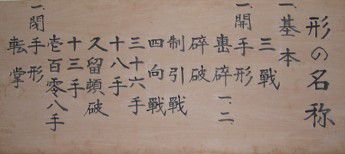 形の名称
一、基本
三戦
一、開手形
撃砕 一、二
砕破
制引戦
四向戦
三十六手
十八手
久留頓破
十三手
壱百零八手
一、閉手形
転掌